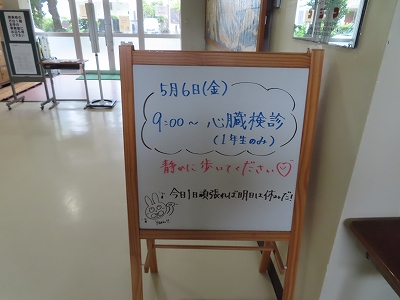 5月6日(金)
9:00～ 心臓検診
(1年生のみ)
静かに歩いてください♡
今日1日頑張れば明日は休みだ!